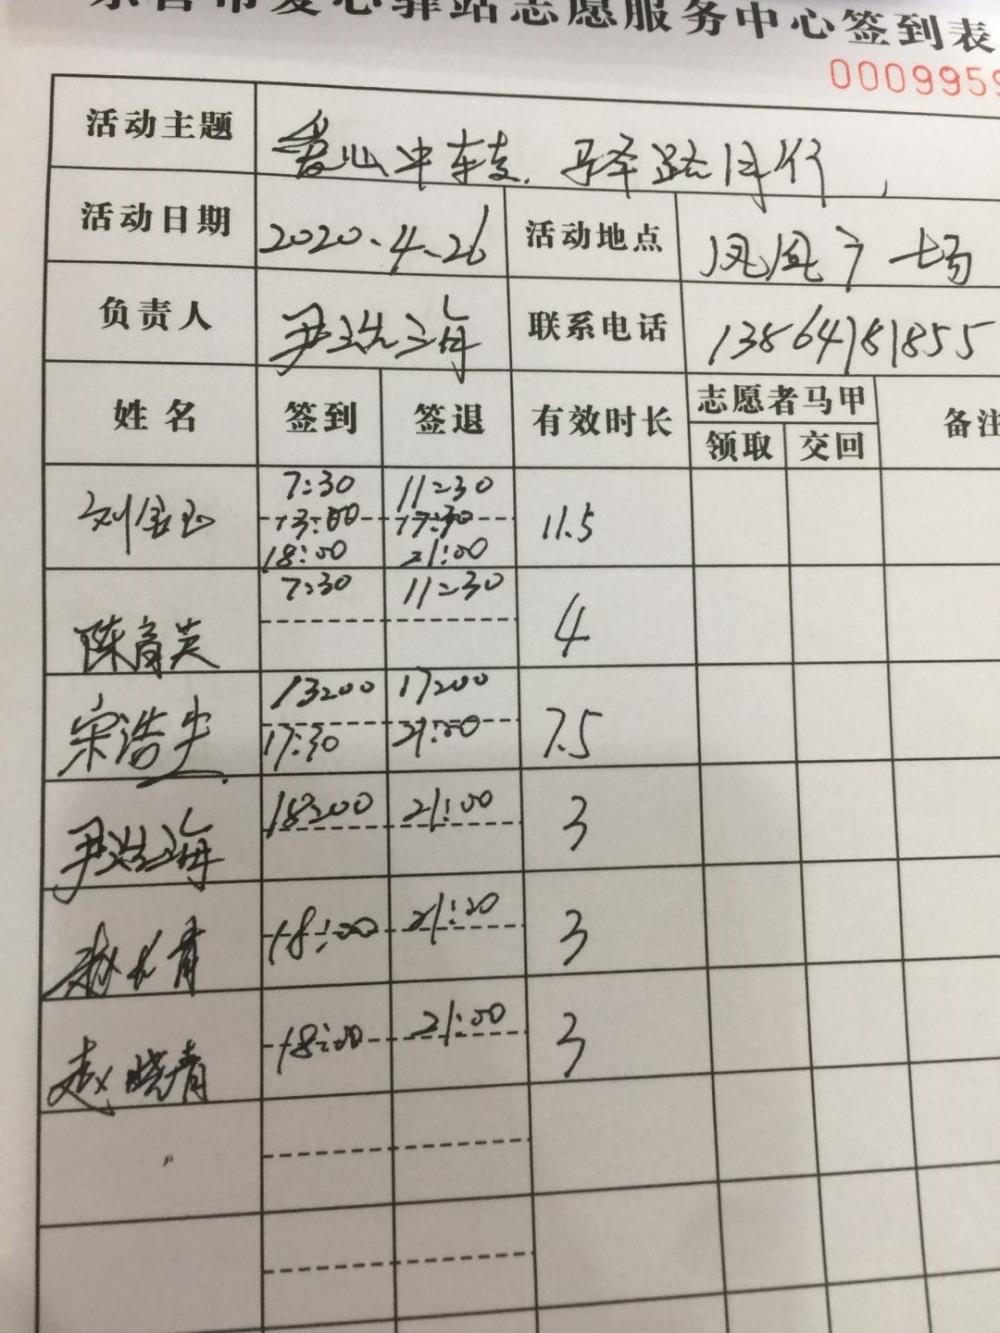 东营市爱心驿站志愿服务中心签到表
0009959
活动主题 爱心中转 驿路同行
活动日期 2020.4.26 活动地点 凤凰广场
负责人 尹浩海 联系电话 13864181855
姓名 签到 签退 有效时长 志愿者马甲 备注
领取 交回
刘金玉 7:30 11:30 11.5
13:00 17:30
18:00 21:00
陈育英 7:30 11:30 4
宋浩 13:00 17:00 7.5
17:30 21:00
尹浩海 18:00 21:00 3
赵长青 18:00 21:00 3
赵晓青 18:00 21:00 3